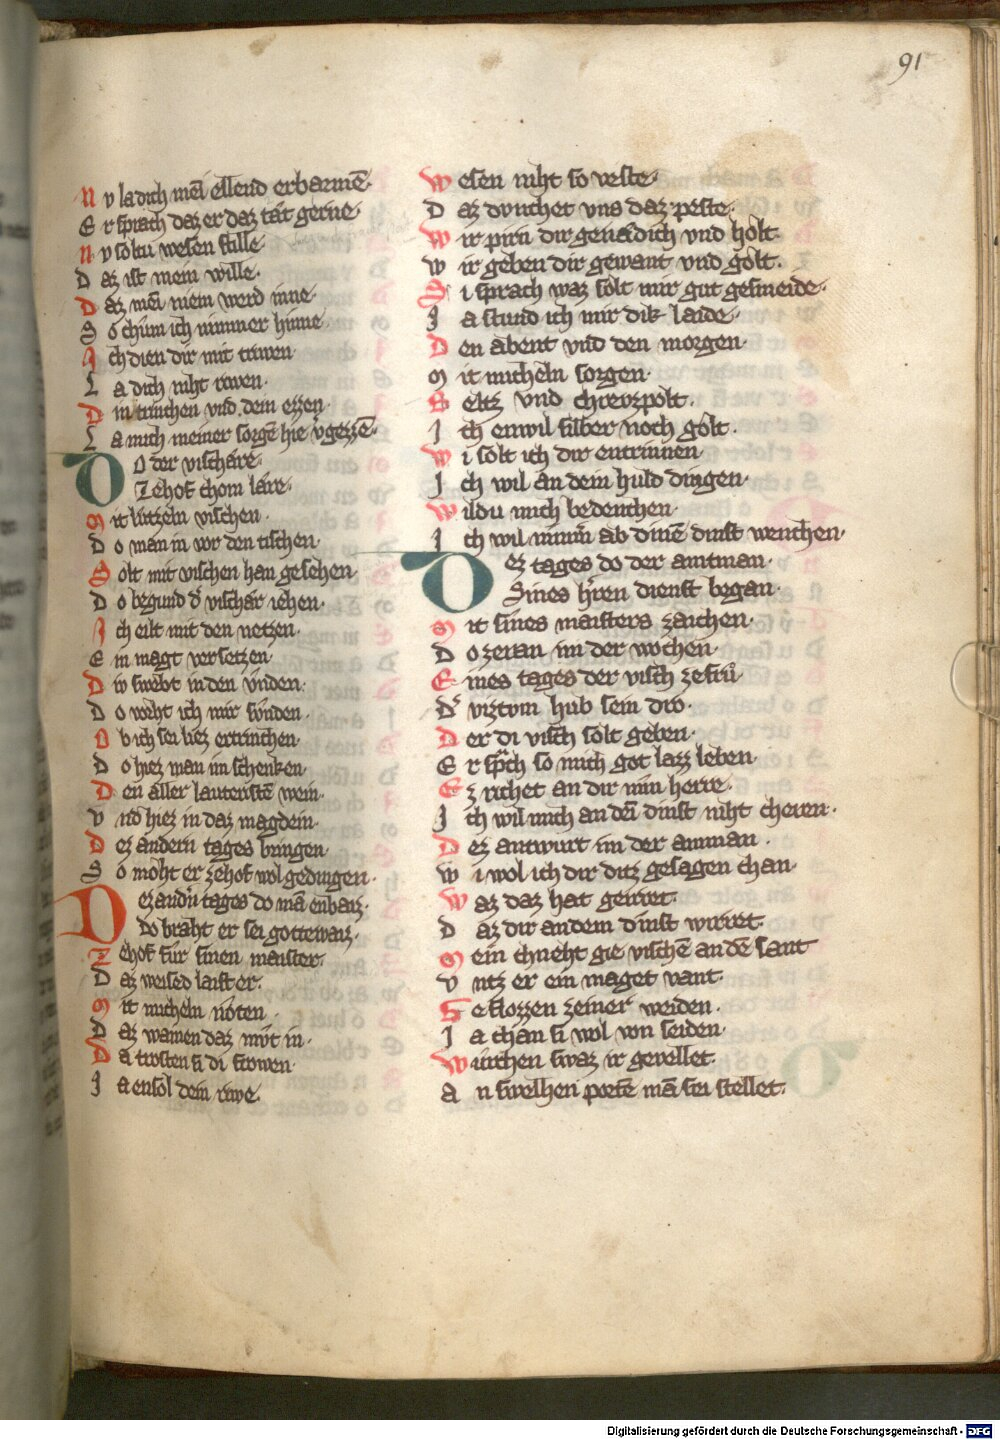 91
Nv la dich mei ellend erbarmē.
Er sprach daz er daz tat gerne.
Nv soltu wesen stille
Daz ist mein wille.
Daz mei niem werd inne.
So chum ich nimmer hinne.
Ich dien dir mit triwen
La dich niht riwen.
Din trinchen vnd dein ezzen
La mich meiner sorgē hie v̄gezzē.
DO der vischare.
Zehof chom lare.
Mit lutzeln vischen.
Do man in vor den tischen.
Solt mit vischen han gesehen.
Do begund d' vischar iehen.
Ich eilt mit den netzen.
Ein magt versetzen.
Div swebt in den vnden.
Do weht ich mir svnden.
Ob ich sei liez ertrinchen.
Do hiez man im schenken.
Den aller lautersten wein.
Vnd hiez in daz magdein.
Dez andern tages bringen.
So moht er zehof wol gedingen.
Dez andn tages do mā enbaiz.
Do braht er sei gottewaiz.
Zehof fur sinen maister.
Daz weised laister.
Mit micheln noten.
Daz wainen daz mvt in.
Da trosten si di frowen.
Ja ensol dein riwe.
Wesen niht so veste.
Daz dvnchet vns daz peste.
Wir pirn dir genadich vnd holt
Wir geben dir gewant vnd golt.
Si sprach waz solt mir gut gesmeide.
Ja stund ich mir dik laide.
Den abent vnd den morgen.
Mit micheln sorgen.
Seltz vnd chrevzpolt.
Ich enwil silber noch golt.
Wi solt ich dir entrinnen.
Ich wil an dein huld dingen.
Wildu mich bedenchen.
Ich wil nimm̄ ab dinē dinst wenchen.
Dez tages do der amtman.
Sines hr̄en dienst began.
Mit sines maisters zaichen.
Do zeran im der wochen.
Eines tages der visch zefru.
D' viztvm hub sein dro.
Der di visch solt geben.
Er spch so mich got lazz leben.
Ez richet an dir min herre.
Ich wil mich an dei dinst niht cheren.
Dez antwurt im der amman.
Wi wol ich dir ditz gesagen chan.
Waz daz hat geirret.
Daz dir an dem dinst wirret.
Mein chneht gie vischē an dē sant
Vntz er ein maget vant.
Geflozzen zeiner weiden.
Ja chan si wol von seiden.
Wurchen swaz ir gevellet.
An swelhen portē mā sei stellet.
Digitalisierung gefördert durch die Deutsche Forschungsgemeinschaft - DFG